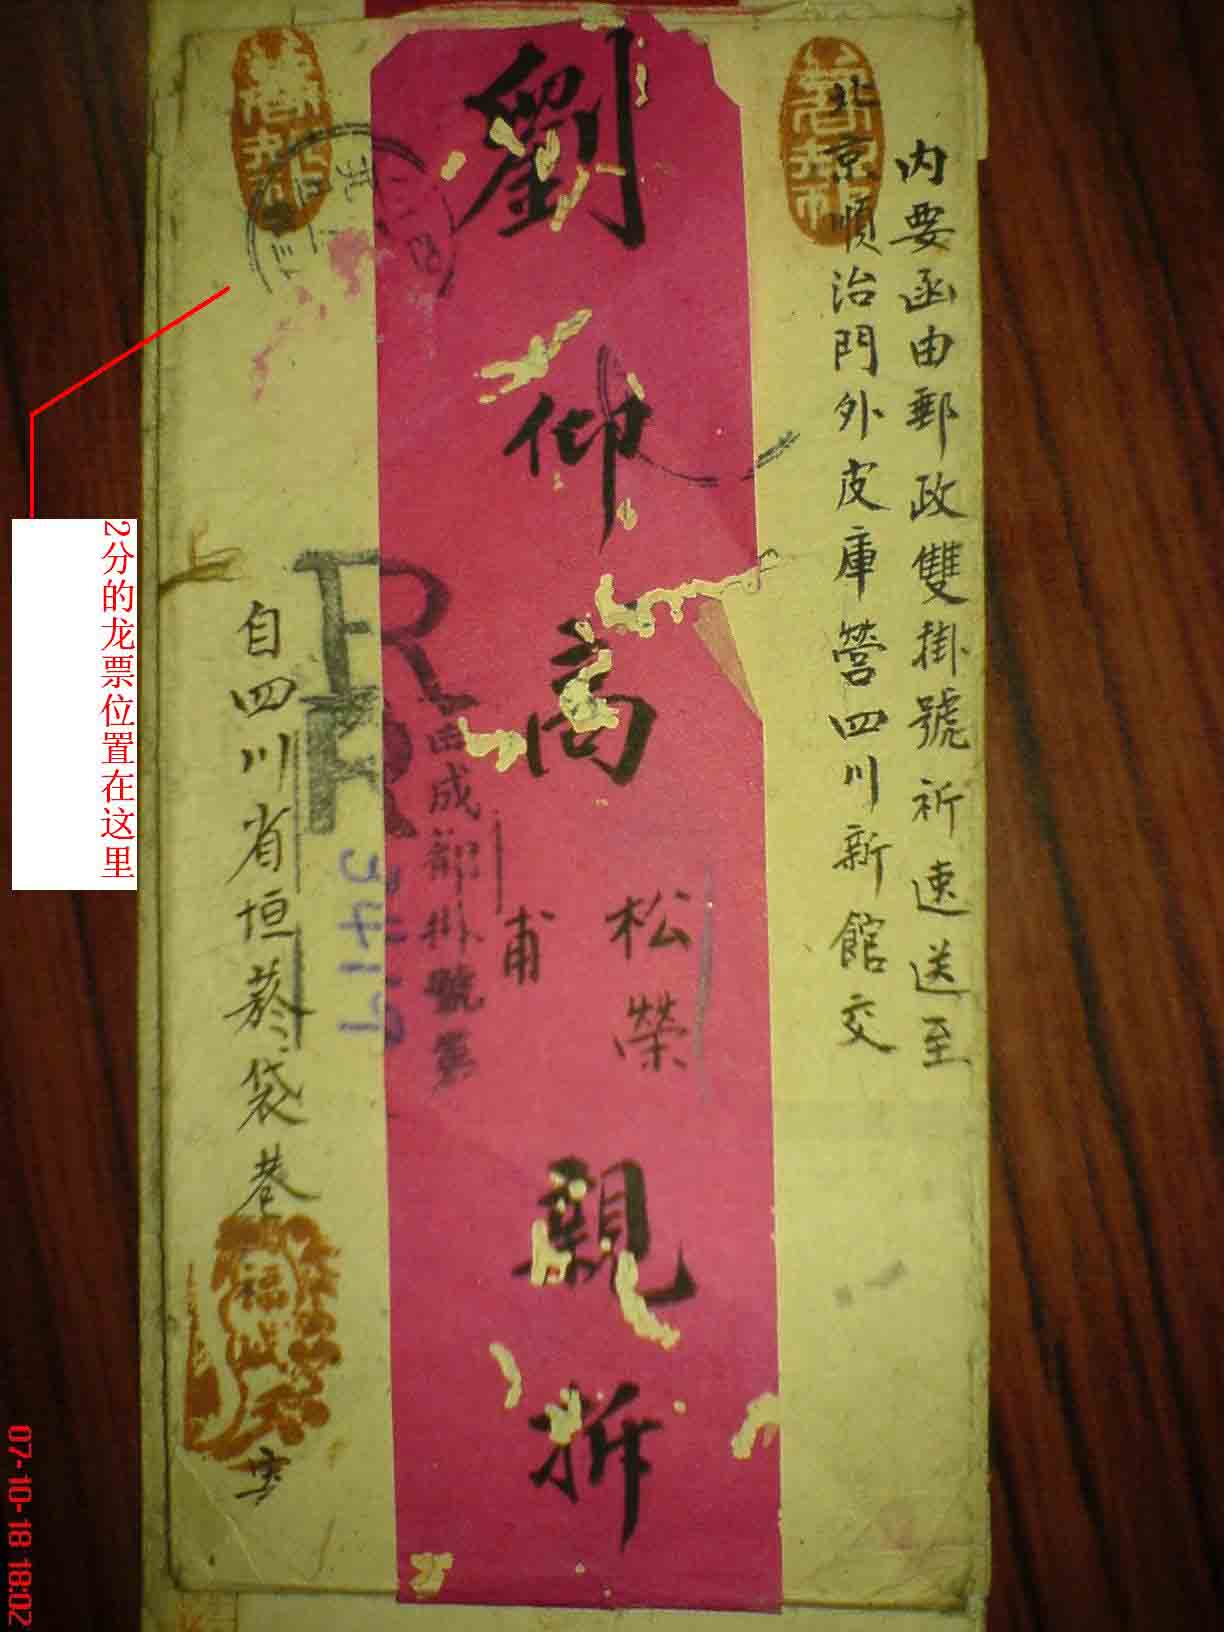 内要函由郵政雙掛號祈速送至
北京順治門外皮庫營四川新館交
劉仰高
松榮
甫
親拆
由成都掛號第
R
R
3419
自四川省垣菸袋巷
福
2分的龙票位置在这里
07-10-18 18:02